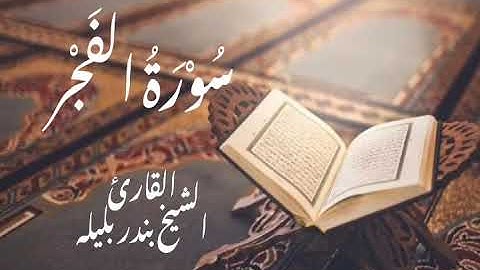 سُوْرَةُ الفَجْرْ
القارئ
الشيخ بندر بليله